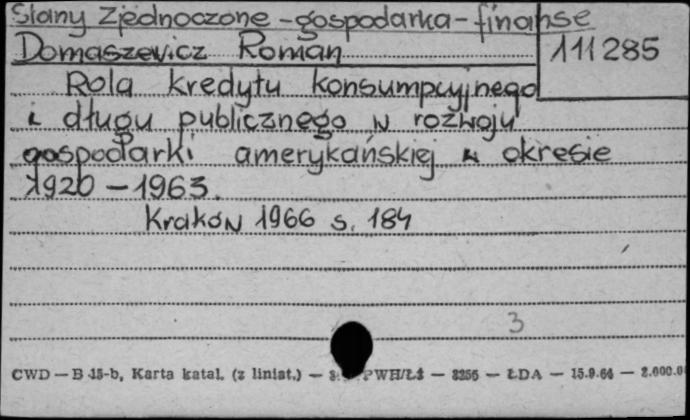 Stany Zjednoczone - gospodarka - finanse
Domaszewicz Roman
111285
Rola kredytu konsumpcyjnego
i długu publicznego w rozwoju
gospodarki amerykańskiej w okresie
1920 - 1963.
Kraków 1966 s. 184
3
CWD — B 15-b, Karta katal. (z liniat.) — PWH/Ł3 — 3256 — ŁDA — 15.9.64 — 2.000.0